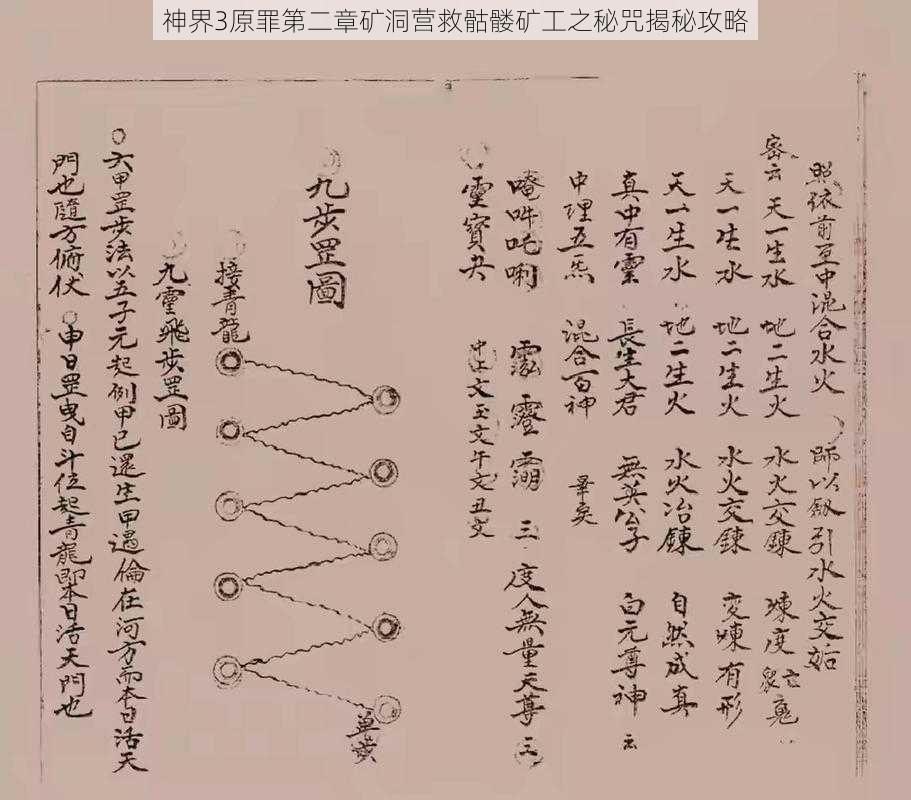 神界3原罪第二章矿洞营救骷髅矿工之秘咒揭秘攻略
照依前互中混合水火 師以劔引水火交姤
密云 天一生水 地二生火 水火交鍊 煉度亡
天一生水 地二生火 水火交鍊 変煉有形
天一生水 地二生火 水火冶鍊 自然成真
真中有灵 長生大君 無英公子 白元尊神 云
中理五炁 混合百神 畢矣
唵吽吒唎 三 度人無量天尊 三
霊寶
中上文玉文午文丑文
九步罡圖
接青龍
九霊飛步罡圖
○六甲罡步法以五子元起例甲己還生甲遇倫在河方而本日活天
門也隨方俯伏 ○申日罡曳自斗位起青龍即本日活天門也